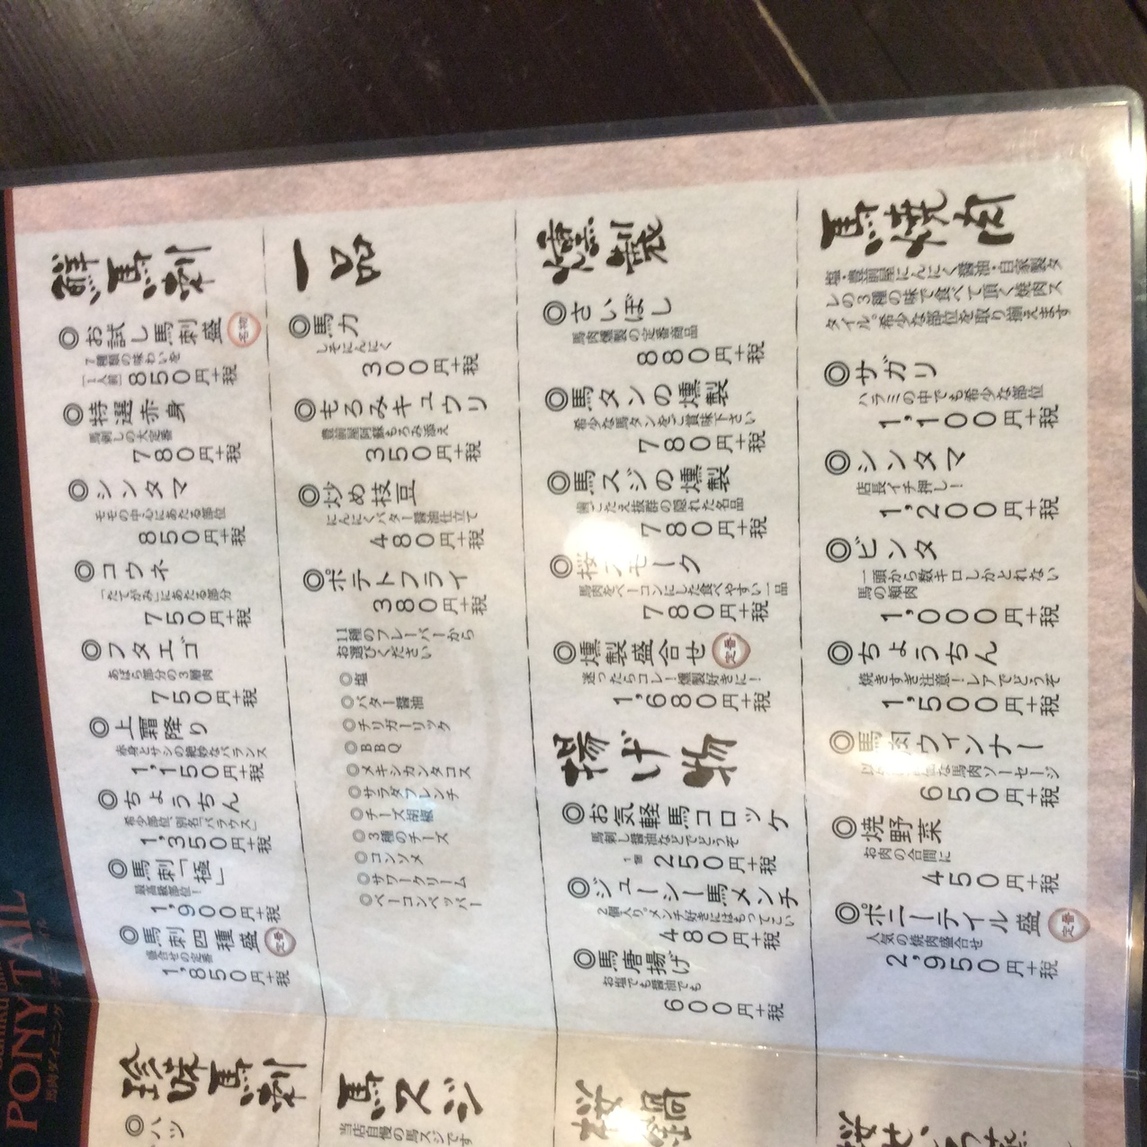 鮮馬刺
◎お試し馬刺盛 名物
7種類の味わいを
[1人前]850円+税
◎特選赤身
馬刺しの大定番
780円+税
◎シンタマ
モモの中心にあたる部位
850円+税
◎コウネ
「たてがみ」にあたる部分
750円+税
◎フタエゴ
あばら部分の3層肉
750円+税
◎上霜降り
赤身とサシの絶妙なバランス
1,150円+税
◎ちょうちん
希少部位、別名「バラウス」
1,350円+税
◎馬刺「極」
最高級部位!
1,900円+税
◎馬刺四種盛 定番
盛合せの定番
1,850円+税
一品
◎馬力
しそにんにく
300円+税
◎もろみキュウリ
豊前屋阿蘇もろみ添え
350円+税
◎炒め枝豆
にんにくバター醤油仕立て
480円+税
◎ポテトフライ
380円+税
11種のフレーバーから
お選びください
◎塩
◎バター醤油
◎チリガーリック
◎BBQ
◎メキシカンタコス
◎サラダフレンチ
◎チーズ胡椒
◎3種のチーズ
◎コンソメ
◎サワークリーム
◎ベーコンペッパー
燻製
◎さいぼし
馬肉燻製の定番商品
880円+税
◎馬タンの燻製
希少な馬タンをご賞味下さい
780円+税
◎馬スジの燻製
歯ごたえ抜群の隠れた名品
780円+税
◎桜スモーク
馬肉をベーコンにした食べやすい一品
780円+税
◎燻製盛合せ 定番
迷ったらコレ!燻製好きに!
1,680円+税
揚げ物
◎お気軽馬コロッケ
馬刺し醤油などでどうぞ
1個 250円+税
◎ジューシー馬メンチ
2個入り。メンチ好きにはもってこい
480円+税
◎馬唐揚げ
お塩でも醤油でも
600円+税
馬焼肉
塩・豊前屋にんにく醤油・自家製タ
レの3種の味で食べて頂く焼肉ス
タイル。希少な部位を取り揃えます
◎サガリ
ハラミの中でも希少な部位
1,100円+税
◎シンタマ
店長イチ押し!
1,200円+税
◎ビンタ
一頭から数キロしかとれない
馬の頬肉
1,000円+税
◎ちょうちん
焼きすぎ注意!レアでどうぞ
1,500円+税
◎馬肉ウインナー
な馬肉ソーセージ
650円+税
◎焼野菜
お肉の合間に
450円+税
◎ポニーテイル盛 定番
人気の焼肉盛合せ
2,950円+税
珍味馬刺
◎ハツ
馬スジ
当店自慢の馬スジです
桜鍋
PONY TAIL
馬肉ダイニング